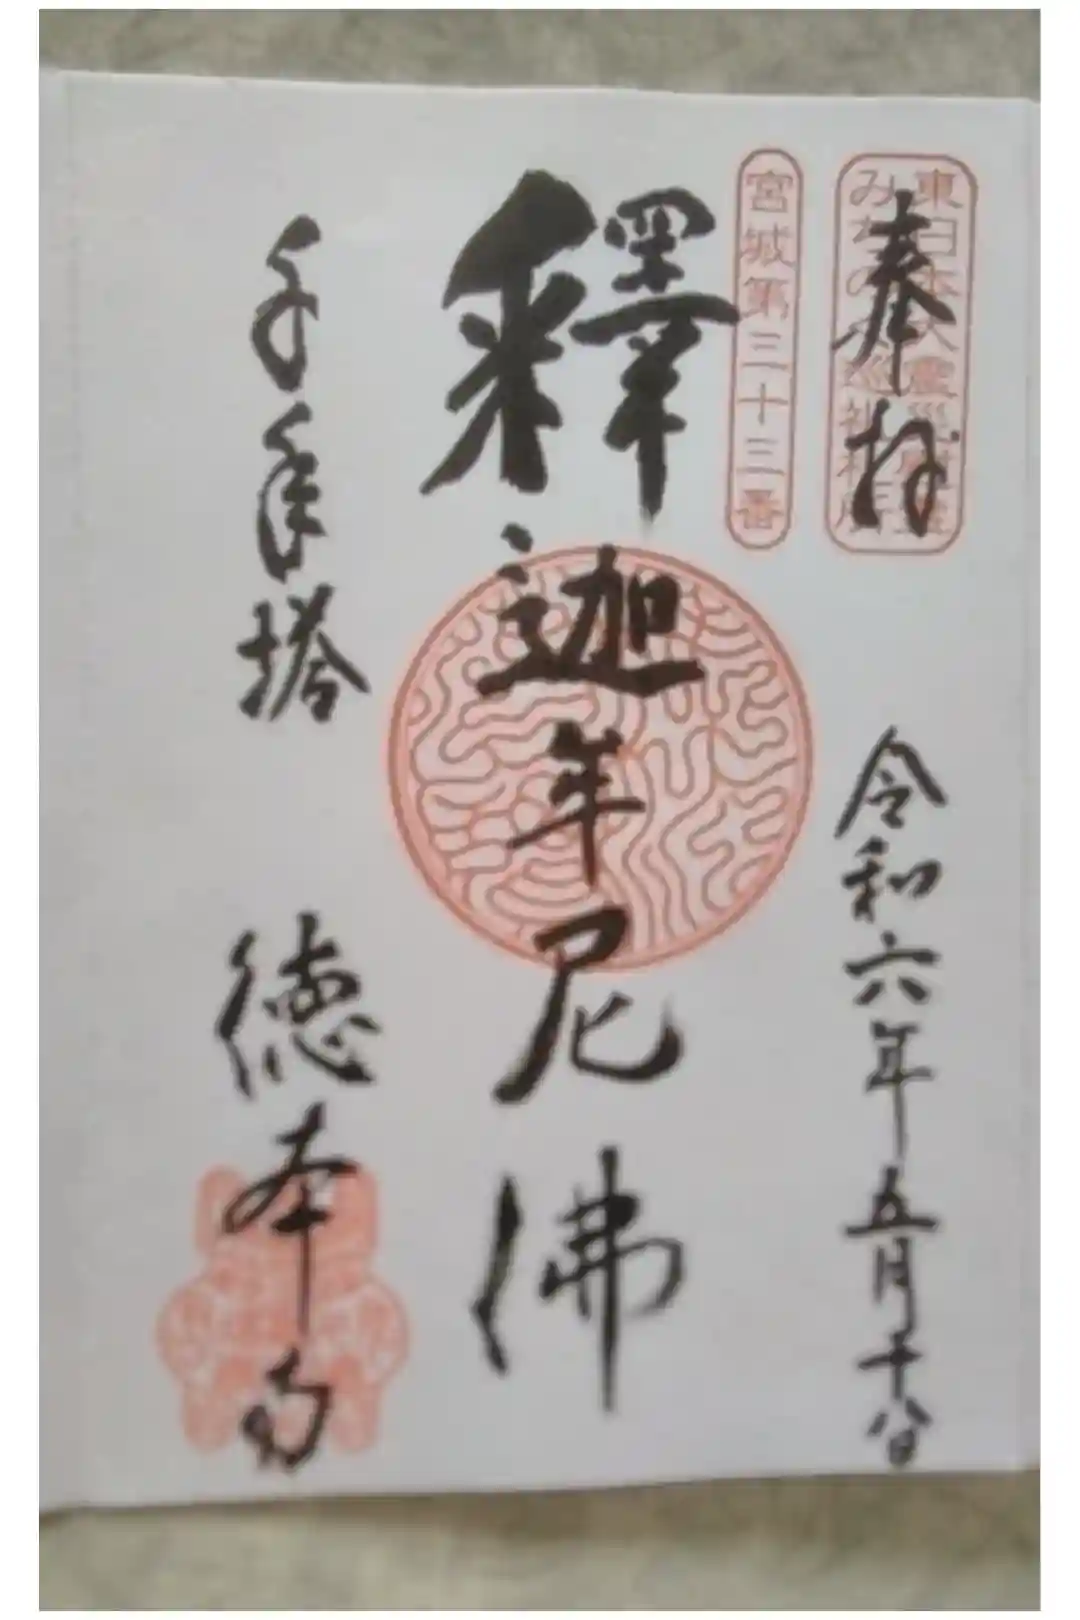 奉拝
東日本大震災慰霊
みちのく巡礼札所
令和六年五月十八日
宮城第三十三番
釋迦牟尼佛
千手塔
徳本寺